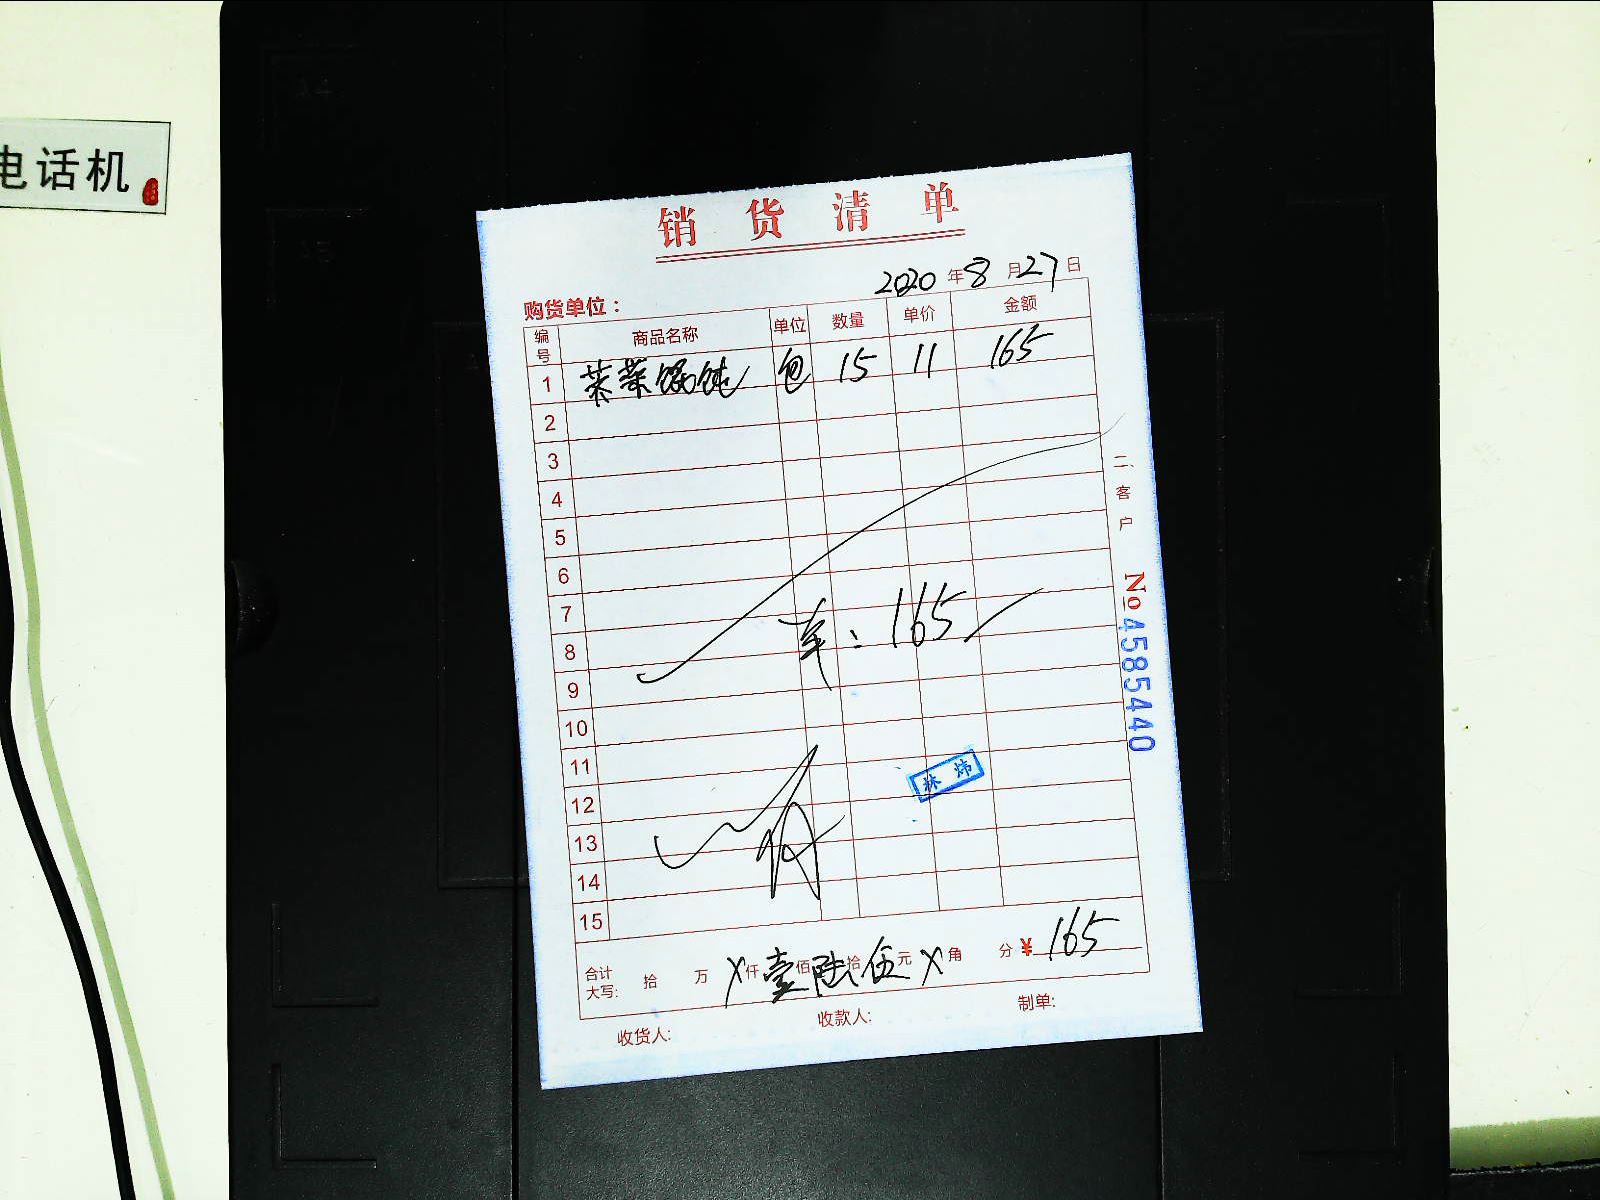 电话机
销货清单
2020年8月27日
购货单位：
编号 商品名称 单位 数量 单价 金额
1 菜馄饨 包 15 11 165
2
3
4
5
6
7
8
9
10
11
12
13
14
15
：165
林炜
合计大写: 拾 万 X仟壹佰陆拾伍元X角 分¥165
收货人: 收款人: 制单:
二、客户
No4585440